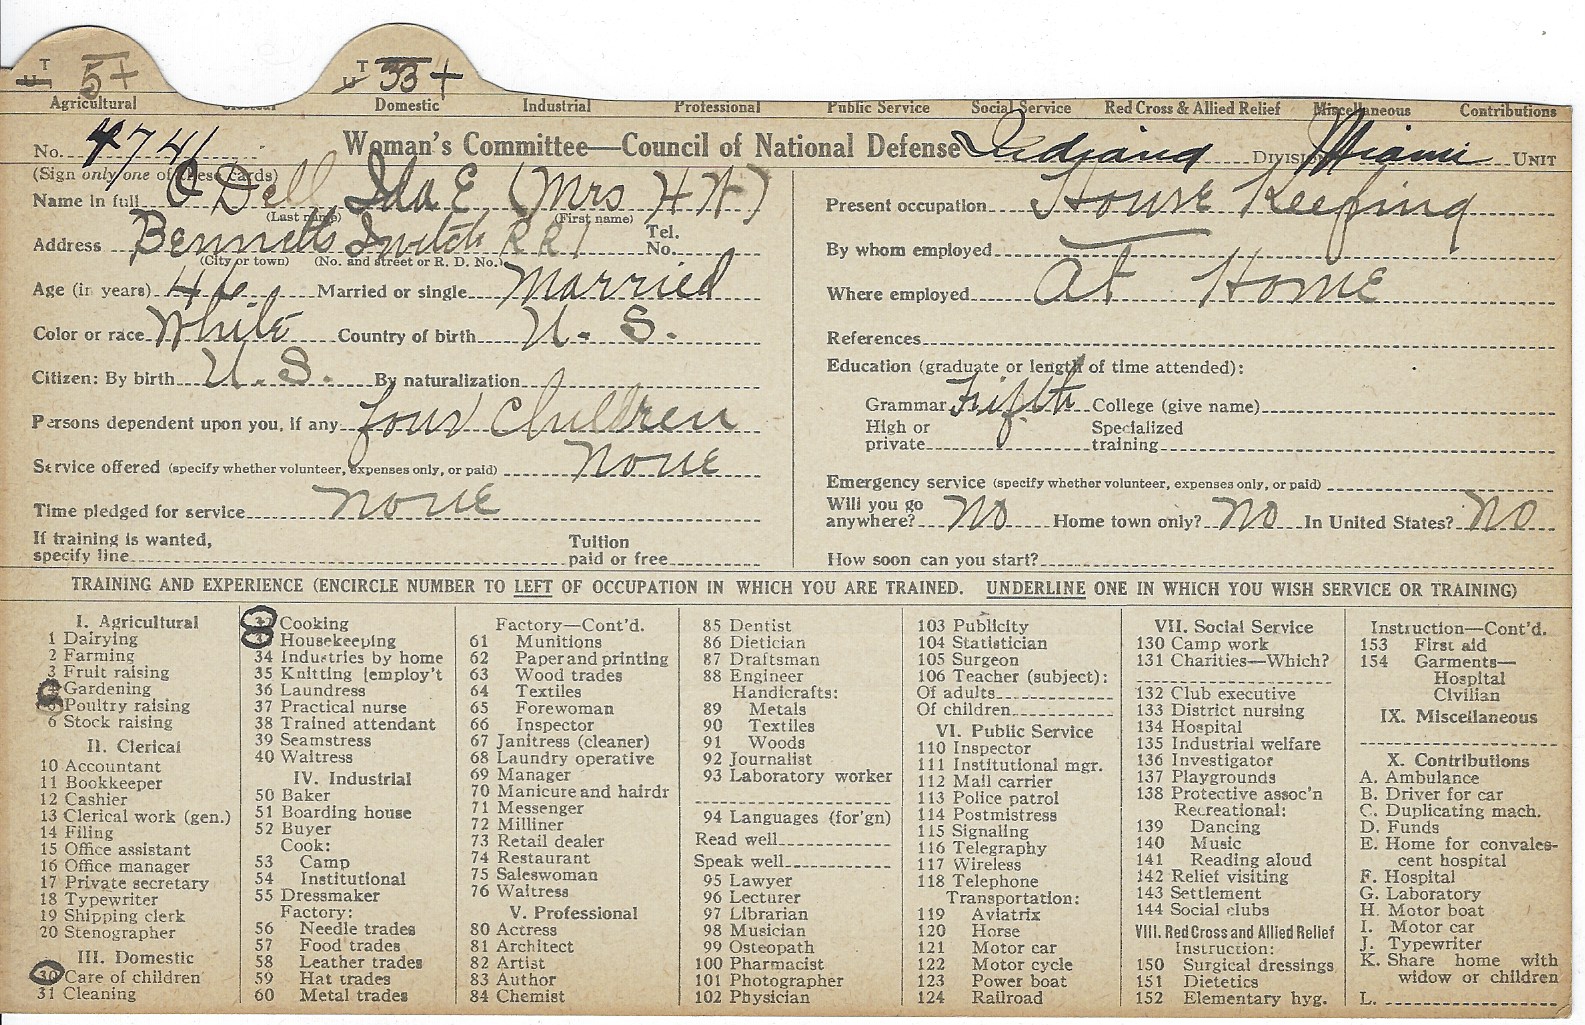 T U 5+ T U 33+
Agricultural Clerical Domestic Industrial Professional Public Service Social Service Red Cross & Allied Relief Miscellaneous Contributions
No. 4741 Woman's Committee—Council of National Defense Indiana DIVISION Miami UNIT
(Sign only one of these cards)
Name in full O Dell Ida E (Mrs H W)
(Last name) (First name)
Address Bennetts Switch R R 1 Tel. No.
(City or town) (No. and street or R. D. No.)
Age (in years) 46. Married or single Married
Color or race White Country of birth U. S.
Citizen: By birth U. S. By naturalization
Persons dependent upon you, if any four Children
Service offered (specify whether volunteer, expenses only, or paid) none
Time pledged for service none
If training is wanted,
specify line
Tuition
paid or free
Present occupation House Keeping
By whom employed
Where employed At Home
References
Education (graduate or length of time attended):
Grammar Fifth College (give name)
High or
private
Specialized
training
Emergency service (specify whether volunteer, expenses only, or paid)
Will you go
anywhere? No Home town only? No In United States? No
How soon can you start?
TRAINING AND EXPERIENCE (ENCIRCLE NUMBER TO LEFT OF OCCUPATION IN WHICH YOU ARE TRAINED. UNDERLINE ONE IN WHICH YOU WISH SERVICE OR TRAINING)
I. Agricultural
1 Dairying
2 Farming
3 Fruit raising
4 Gardening
5 Poultry raising
6 Stock raising
II. Clerical
10 Accountant
11 Bookkeeper
12 Cashier
13 Clerical work (gen.)
14 Filing
15 Office assistant
16 Office manager
17 Private secretary
18 Typewriter
19 Shipping clerk
20 Stenographer
III. Domestic
30 Care of children
31 Cleaning
32 Cooking
33 Housekeeping
34 Industries by home
35 Knitting [employ't
36 Laundress
37 Practical nurse
38 Trained attendant
39 Seamstress
40 Waitress
IV. Industrial
50 Baker
51 Boarding house
52 Buyer
Cook:
53 Camp
54 Institutional
55 Dressmaker
Factory:
56 Needle trades
57 Food trades
58 Leather trades
59 Hat trades
60 Metal trades
Factory—Cont'd.
61 Munitions
62 Paper and printing
63 Wood trades
64 Textiles
65 Forewoman
66 Inspector
67 Janitress (cleaner)
68 Laundry operative
69 Manager
70 Manicure and hairdr
71 Messenger
72 Milliner
73 Retail dealer
74 Restaurant
75 Saleswoman
76 Waitress
V. Professional
80 Actress
81 Architect
82 Artist
83 Author
84 Chemist
85 Dentist
86 Dietician
87 Draftsman
88 Engineer
Handicrafts:
89 Metals
90 Textiles
91 Woods
92 Journalist
93 Laboratory worker
94 Languages (for'gn)
Read well
Speak well
95 Lawyer
96 Lecturer
97 Librarian
98 Musician
99 Osteopath
100 Pharmacist
101 Photographer
102 Physician
103 Publicity
104 Statistician
105 Surgeon
106 Teacher (subject):
Of adults
Of children
VI. Public Service
110 Inspector
111 Institutional mgr.
112 Mail carrier
113 Police patrol
114 Postmistress
115 Signaling
116 Telegraphy
117 Wireless
118 Telephone
Transportation:
119 Aviatrix
120 Horse
121 Motor car
122 Motor cycle
123 Power boat
124 Railroad
VII. Social Service
130 Camp work
131 Charities—Which?
132 Club executive
133 District nursing
134 Hospital
135 Industrial welfare
136 Investigator
137 Playgrounds
138 Protective assoc'n
Recreational:
139 Dancing
140 Music
141 Reading aloud
142 Relief visiting
143 Settlement
144 Social clubs
VIII. Red Cross and Allied Relief
Instruction:
150 Surgical dressings
151 Dietetics
152 Elementary hyg.
Instruction—Cont'd.
153 First aid
154 Garments—
Hospital
Civilian
IX. Miscellaneous
X. Contributions
A. Ambulance
B. Driver for car
C. Duplicating mach.
D. Funds
E. Home for convales-
cent hospital
F. Hospital
G. Laboratory
H. Motor boat
I. Motor car
J. Typewriter
K. Share home with
widow or children
L.